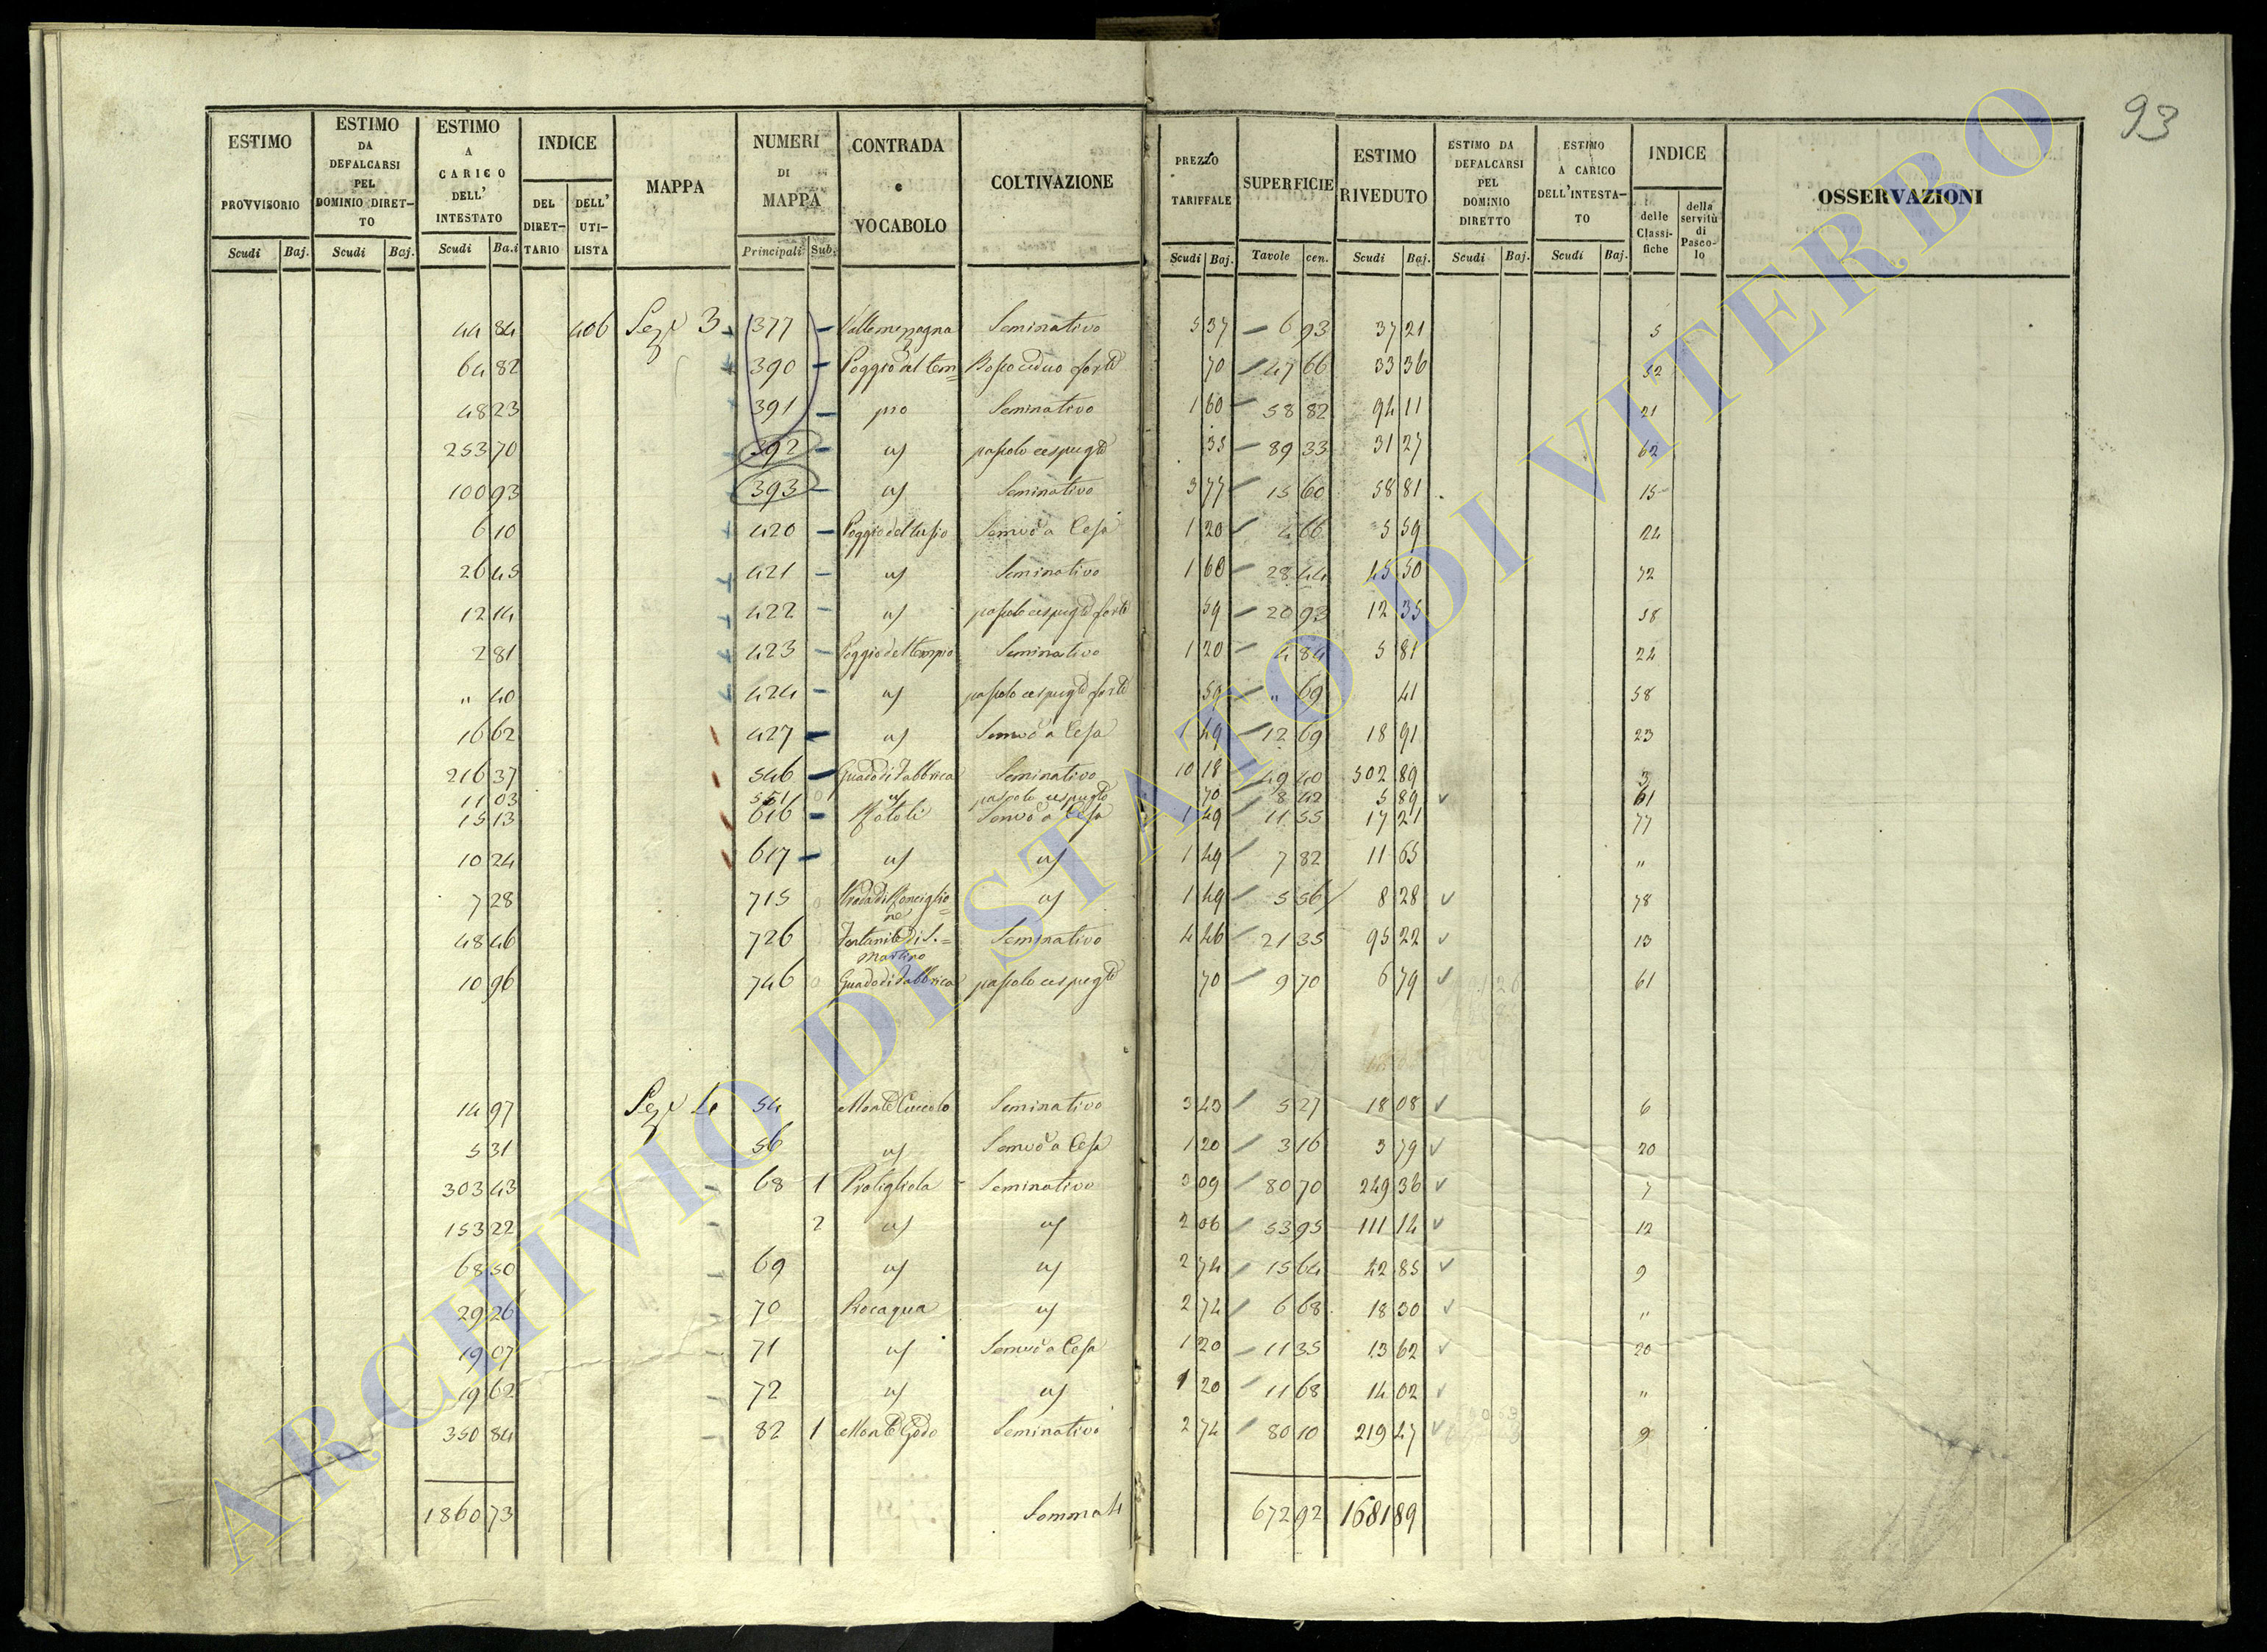 93
ESTIMO PROVVISORIO Scudi Baj.
ESTIMO DA DEFALCARSI PEL DOMINIO DIRETTO Scudi Baj.
ESTIMO A CARICO DELL' INTESTATO Scudi Baj.
INDICE DEL DIRETTARIO DELL' UTILISTA
MAPPA
NUMERI DI MAPPA Principali Sub.
CONTRADA e VOCABOLO
COLTIVAZIONE
PREZZO TARIFFALE Scudi Baj.
SUPERFICIE Tavole cen.
ESTIMO RIVEDUTO Scudi Baj.
ESTIMO DA DEFALCARSI PEL DOMINIO DIRETTO Scudi Baj.
ESTIMO A CARICO DELL'INTESTATO Scudi Baj.
INDICE delle Classifiche della servitù di Pascolo
OSSERVAZIONI
44 84 406 Sez. 3 377 Vallemezzagna Seminativo 5 37 6 93 37 21 5
64 82 390 Poggio al tem= Bosco ceduo forte 70 47 66 33 36 52
48 23 391 pio Seminativo 1 60 58 82 94 11 21
253 70 392 " pascolo cespugto 35 89 33 31 27 62
100 93 393 " Seminativo 3 77 15 60 58 81 15
6 10 420 Semvo a Cesa 1 20 4 66 5 59 24
26 45 421 " Seminativo 1 60 28 44 45 50 72
12 14 422 " pascolo cespugto forte 59 20 93 12 35 58
2 81 423 Poggio del tempio Seminativo 1 20 4 84 5 81 24
" 40 424 " pascolo cespugto forte 59 " 69 41 58
16 62 427 " Semvo a Cesa 1 49 12 69 18 91 23
216 37 546 Guado di Fabbrica Seminativo 10 18 49 40 502 89 3
11 03 551 " pascolo cespugto 70 8 42 5 89 61
15 13 616 Rotoli Semvo a Cesa 1 49 11 55 17 21 77
10 24 617 " " 1 49 7 82 11 65 "
7 28 715 Strada di Ronciglio=ne " 1 49 5 56 8 28 78
48 46 726 Fontanile di S.= Martino Seminativo 4 46 21 35 95 22 13
10 96 746 Guado di Fabbrica pascolo cespugto 70 9 70 6 79 61
14 97 Sez. 4 54 Monte Cuccolo Seminativo 3 43 5 27 18 08 6
5 31 56 " Semvo a Cesa 1 20 3 16 3 79 20
303 43 68 1 Pratigliola Seminativo 3 09 80 70 249 36 7
153 22 2 " " 2 06 53 95 111 14 12
68 50 69 " " 2 74 15 64 42 85 9
29 26 70 Procaqua " 2 74 6 68 18 30 "
19 07 71 " Semvo a Cesa 1 20 11 35 13 62 20
19 62 72 " " 1 20 11 68 14 02 "
350 84 82 1 Monte Godo Seminativo 2 74 80 10 219 47 9
1860 73 Sommati 672 92 1681 89
ARCHIVIO DI STATO DI VITERBO